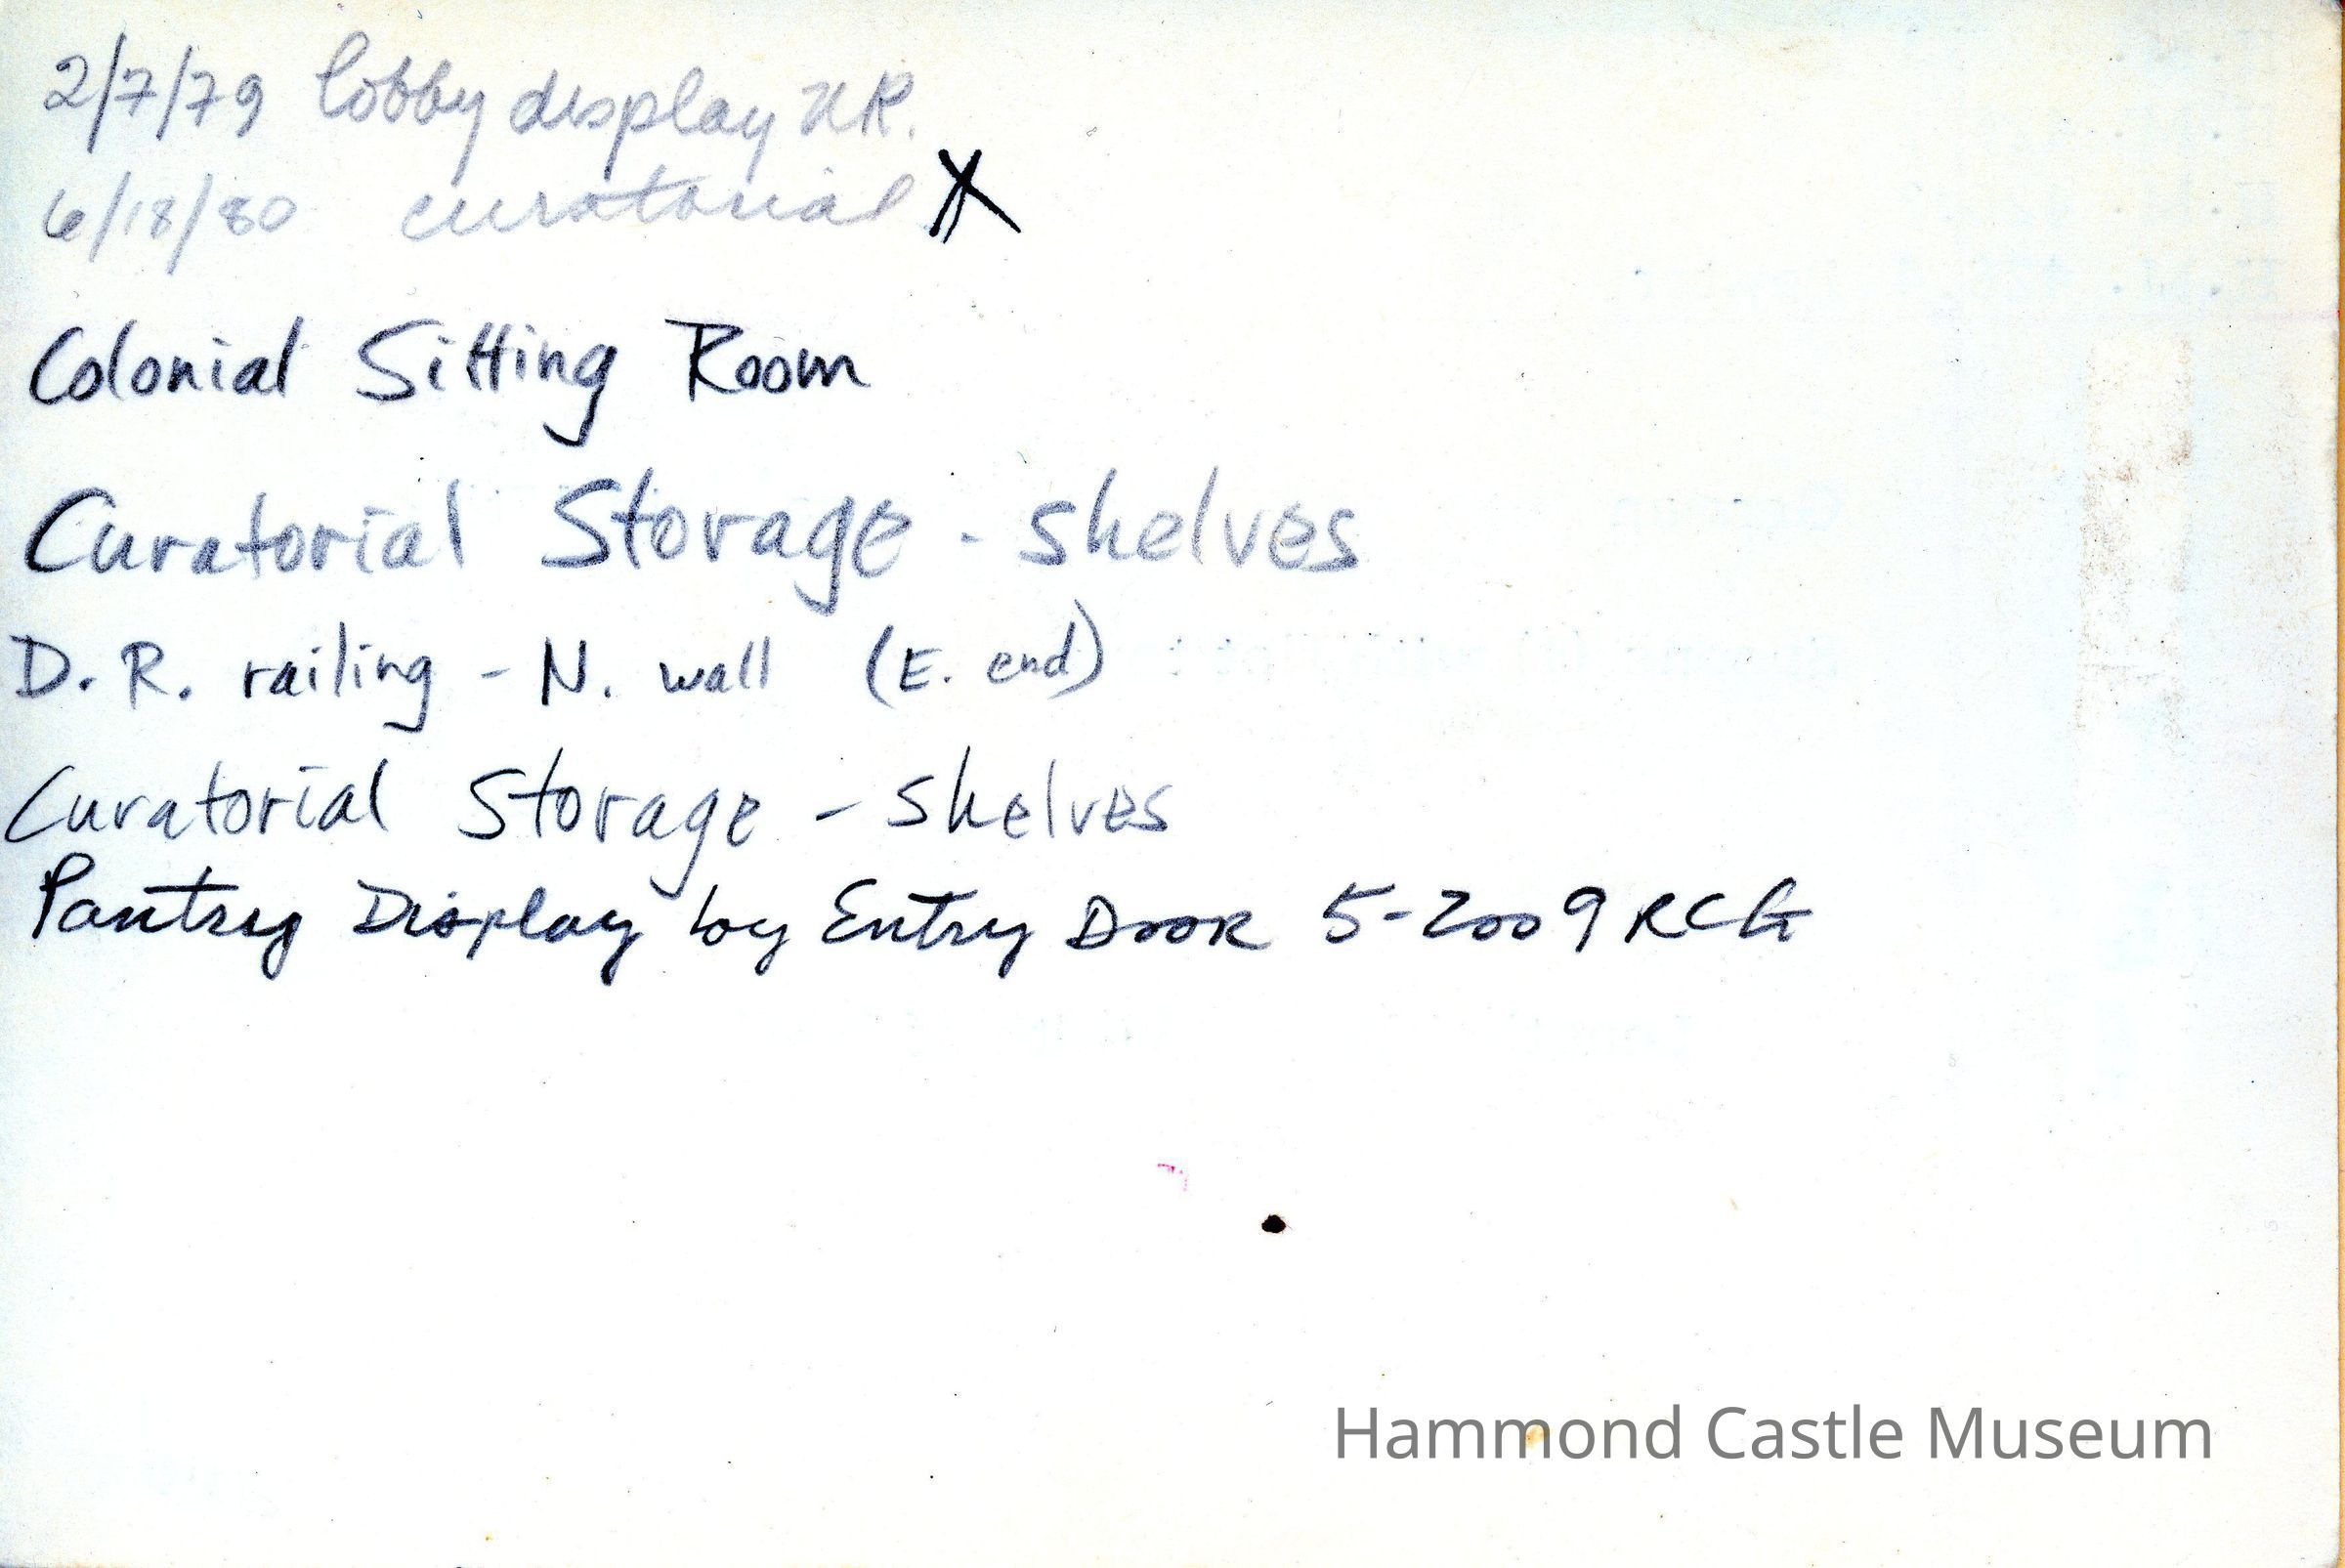 2/7/79 lobby display NR.
6/18/80 curatorial X
Colonial Sitting Room
Curatorial Storage - shelves
D.R. railing - N. wall (E. end)
Curatorial Storage - shelves
Pantry Display by Entry Door 5-2009 RCG
Hammond Castle Museum